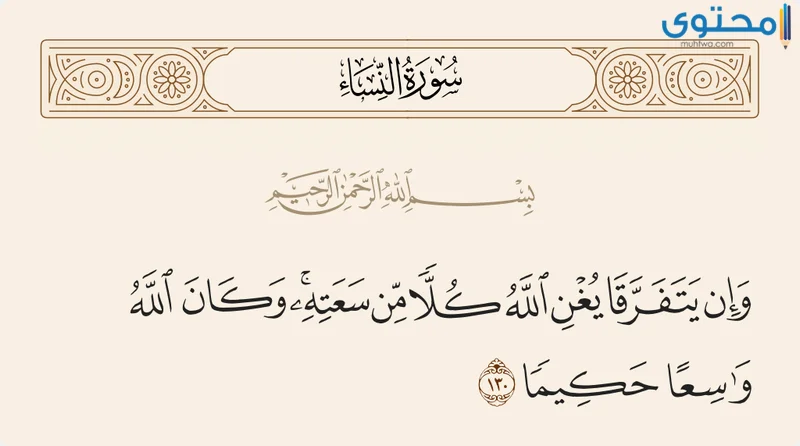 محتوى
muhtwa.com
سُورَةُ النِّسَاءِ
بِسْمِ ٱللَّهِ ٱلرَّحْمَٰنِ ٱلرَّحِيمِ
وَإِن يَتَفَرَّقَا يُغْنِ ٱللَّهُ كُلًّا مِّن سَعَتِهِۦۚ وَكَانَ ٱللَّهُ
وَٰسِعًا حَكِيمًا ١٣٠